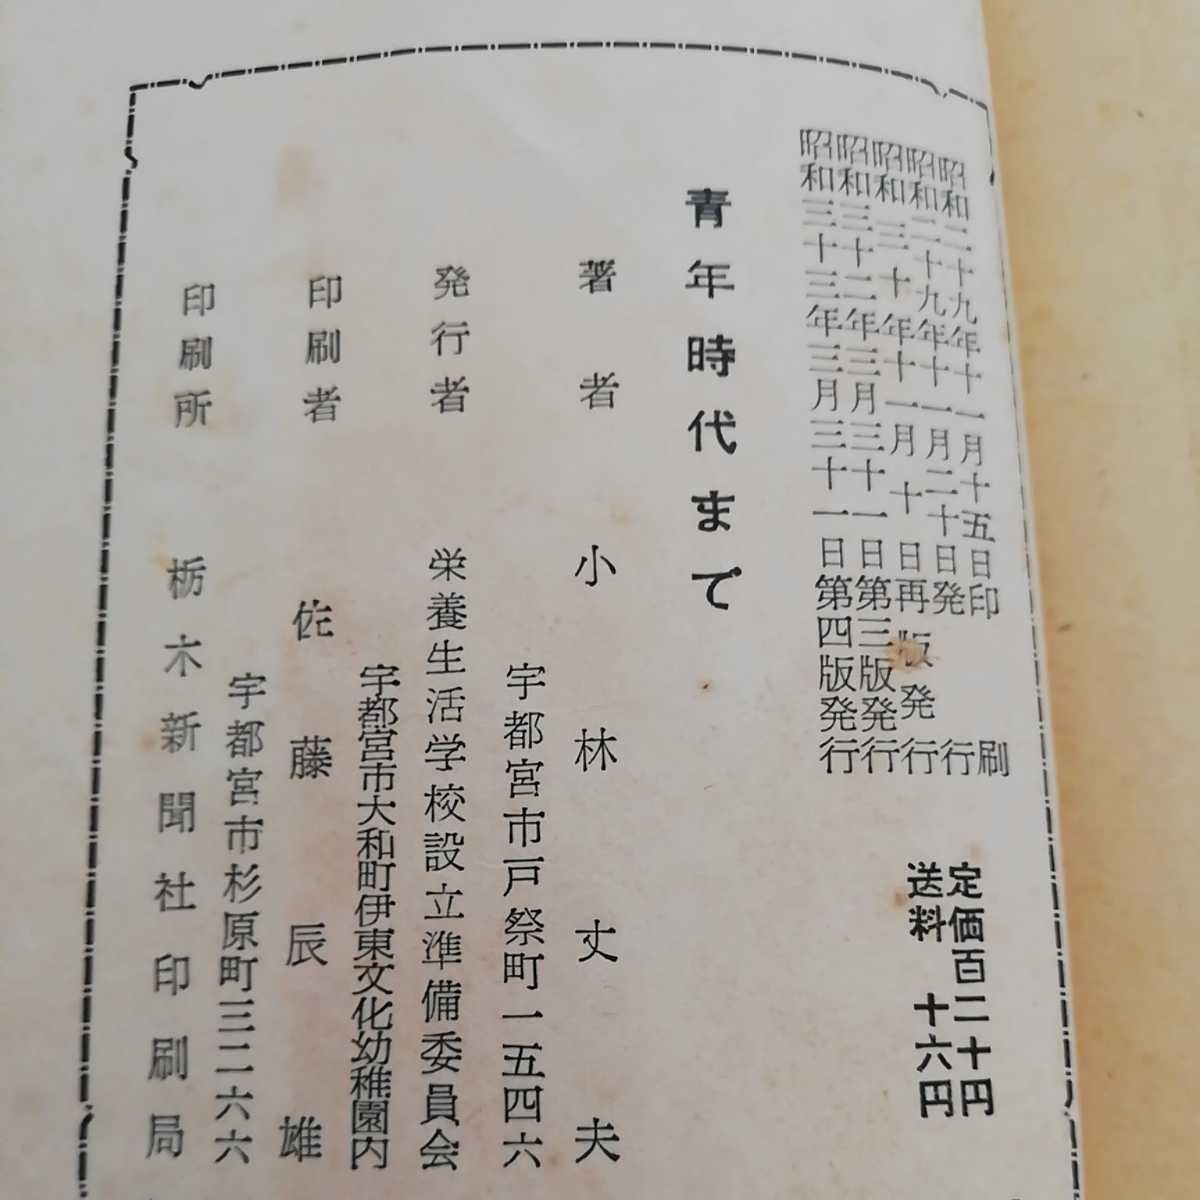 昭和二十九年十一月十五日印刷
昭和二十九年十一月二十日発行
昭和三十年十一月十日再版発行
昭和三十二年三月三十一日第三版発行
昭和三十三年三月三十一日第四版発行
定価百二十円
送料十六円
青年時代まで
著者 小林丈夫
宇都宮市戸祭町一五四六
発行者 栄養生活学校設立準備委員会
宇都宮市大和町伊東文化幼稚園内
印刷者 佐藤辰雄
宇都宮市杉原町三二六六
印刷所 栃木新聞社印刷局